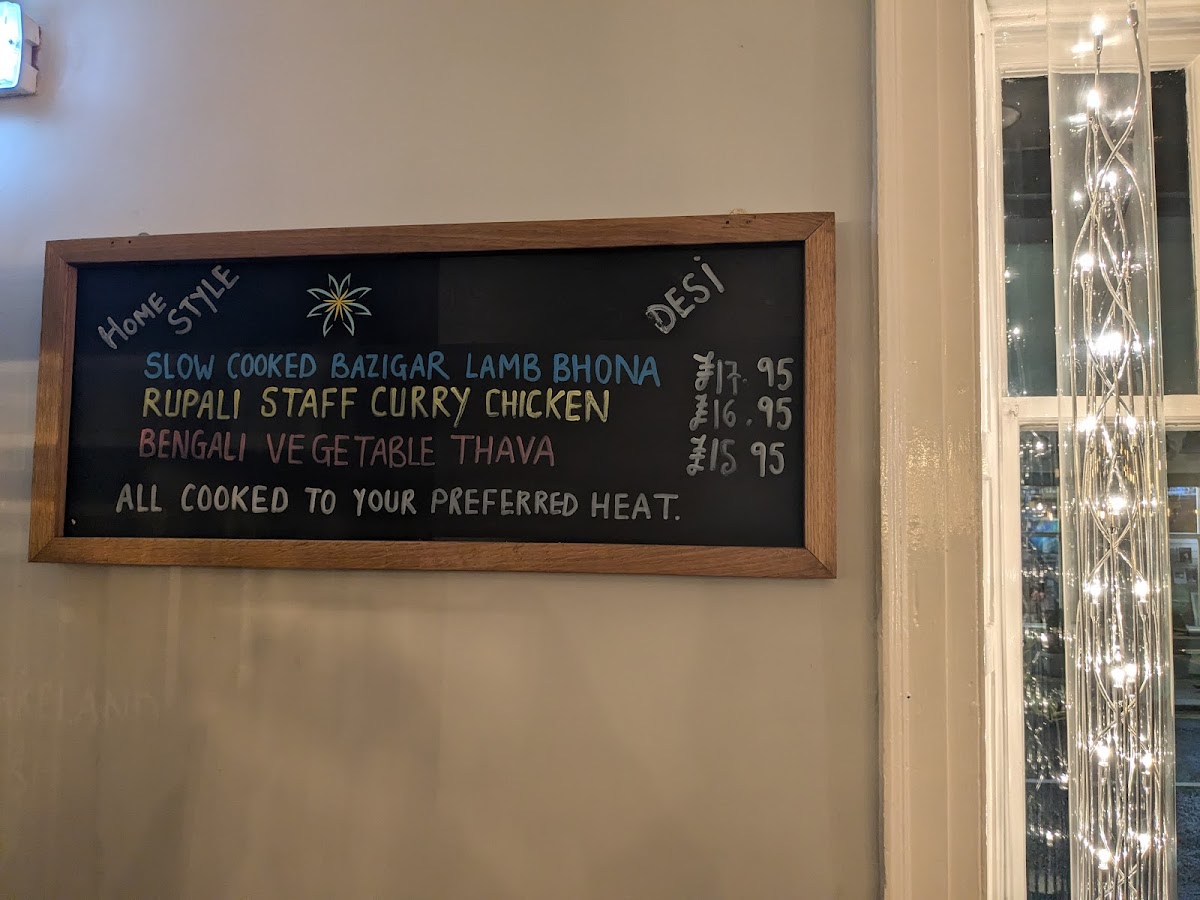 HOME STYLE
DESi
SLOW COOKED BAZIGAR LAMB BHONA £17.95
RUPALI STAFF CURRY CHICKEN £16.95
BENGALI VEGETABLE THAVA £15 95
ALL COOKED TO YOUR PREFERRED HEAT.